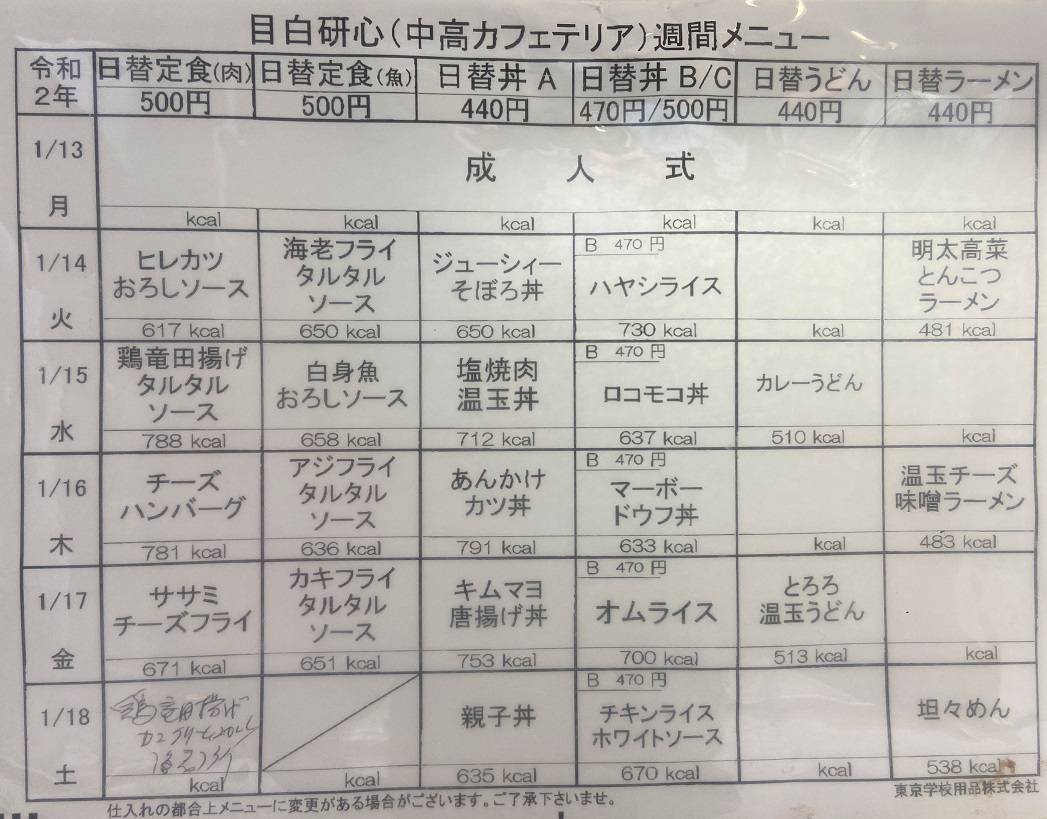 目白研心(中高カフェテリア)週間メニュー
令和2年 日替定食(肉) 日替定食(魚) 日替丼 A 日替丼 B/C 日替うどん 日替ラーメン
500円 500円 440円 470円/500円 440円 440円
1/13 月
成人式
kcal kcal kcal kcal kcal kcal
1/14 火
ヒレカツ
おろしソース
617 kcal
海老フライ
タルタル
ソース
650 kcal
ジューシィー
そぼろ丼
650 kcal
B 470 円
ハヤシライス
730 kcal
kcal
明太高菜
とんこつ
ラーメン
481 kcal
1/15 水
鶏竜田揚げ
タルタル
ソース
788 kcal
白身魚
おろしソース
658 kcal
塩焼肉
温玉丼
712 kcal
B 470 円
ロコモコ丼
637 kcal
カレーうどん
510 kcal
kcal
1/16 木
チーズ
ハンバーグ
781 kcal
アジフライ
タルタル
ソース
636 kcal
あんかけ
カツ丼
791 kcal
B 470 円
マーボー
ドウフ丼
633 kcal
kcal
温玉チーズ
味噌ラーメン
483 kcal
1/17 金
ササミ
チーズフライ
671 kcal
カキフライ
タルタル
ソース
651 kcal
キムマヨ
唐揚げ丼
753 kcal
B 470 円
オムライス
700 kcal
とろろ
温玉うどん
513 kcal
kcal
1/18 土
鶏竜田揚げ
kcal
kcal
親子丼
635 kcal
B 470 円
チキンライス
ホワイトソース
670 kcal
kcal
坦々めん
538 kcal
仕入れの都合上メニューに変更がある場合がございます。ご了承下さいませ。
東京学校用品株式会社